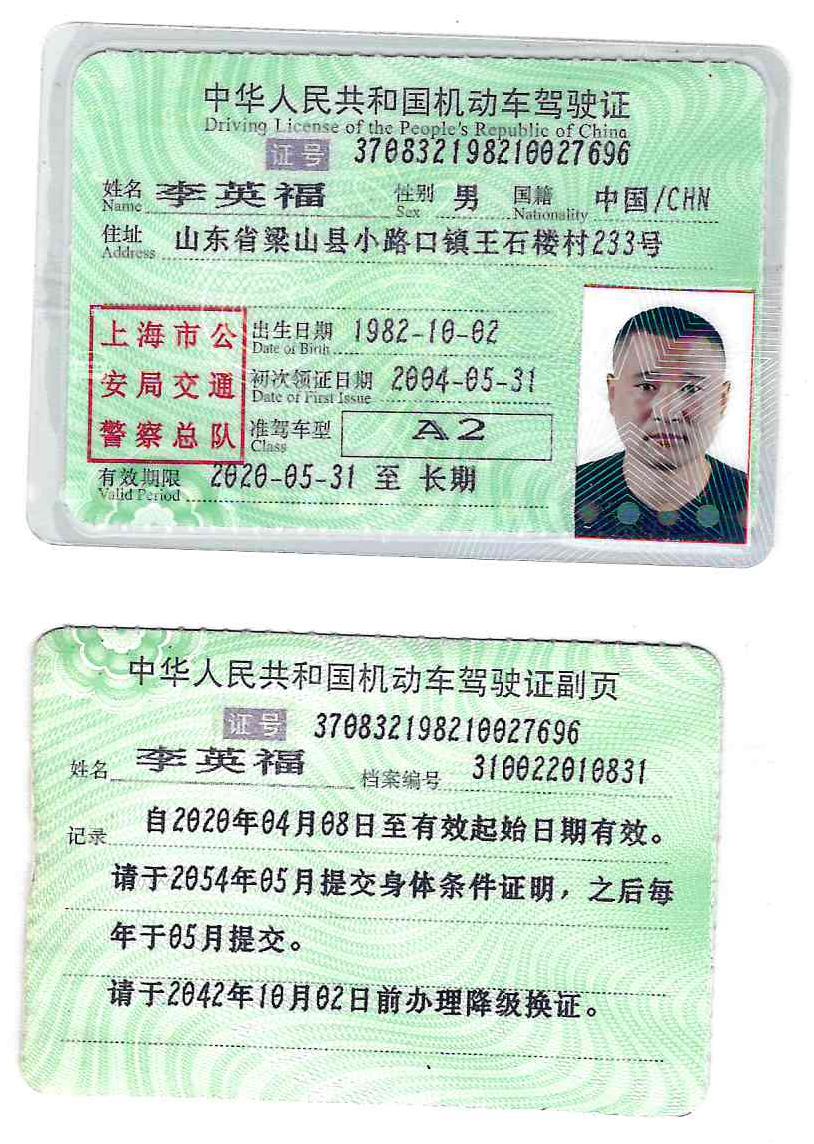 中华人民共和国机动车驾驶证
Driving License of the People's Republic of China
证号 370832198210027696
姓名 李英福 性别 男 国籍 中国/CHN
Name Sex Nationality
住址 山东省梁山县小路口镇王石楼村233号
Address
上海市公
安局交通
警察总队
出生日期 1982-10-02
Date of Birth
初次领证日期 2004-05-31
Date of First Issue
准驾车型 A2
Class
有效期限 2020-05-31 至 长期
Valid Period
中华人民共和国机动车驾驶证副页
证号 370832198210027696
姓名 李英福 档案编号 310022010831
记录 自2020年04月08日至有效起始日期有效。
请于2054年05月提交身体条件证明，之后每
年于05月提交。
请于2042年10月02日前办理降级换证。